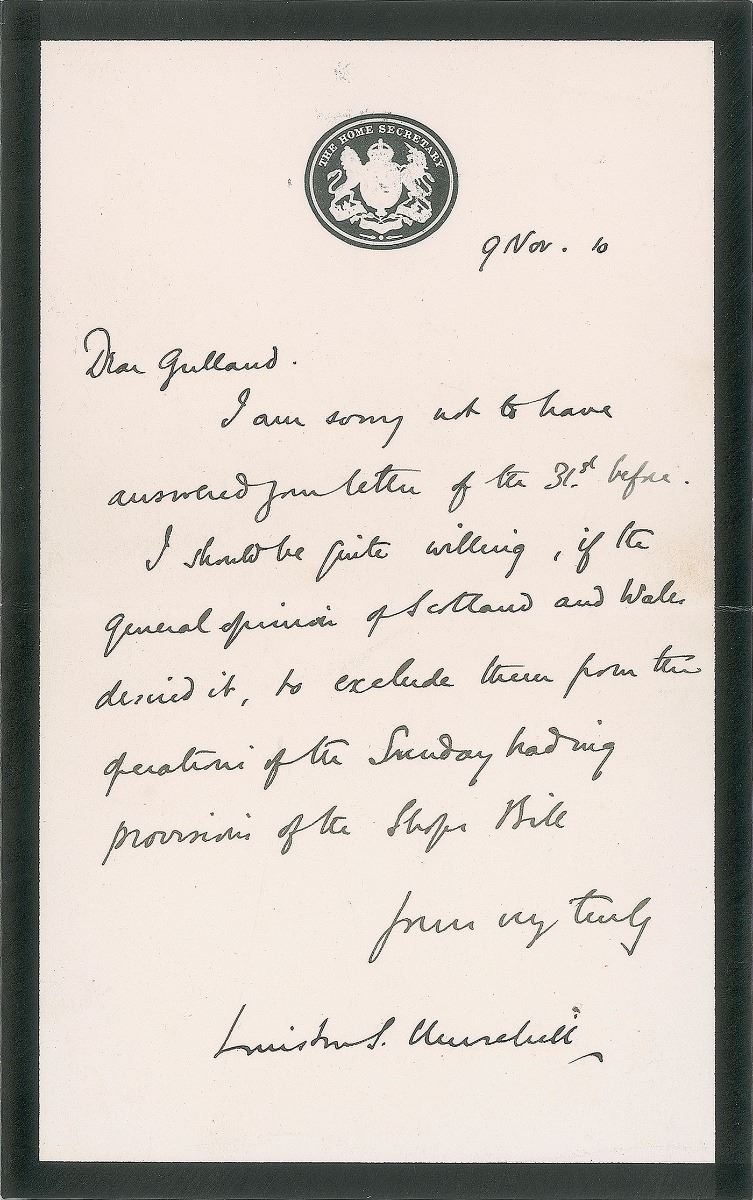 THE HOME SECRETARY
9 Nov. 10
Dear Gulland.
I am sorry not to have
answered your letter of the 31.st before.
I should be quite willing, if the
general opinion of Scotland and Wales
desired it, to exclude them from the
operation of the Sunday trading
provisions of the Shops Bill
Yours very truly
Winston S. Churchill